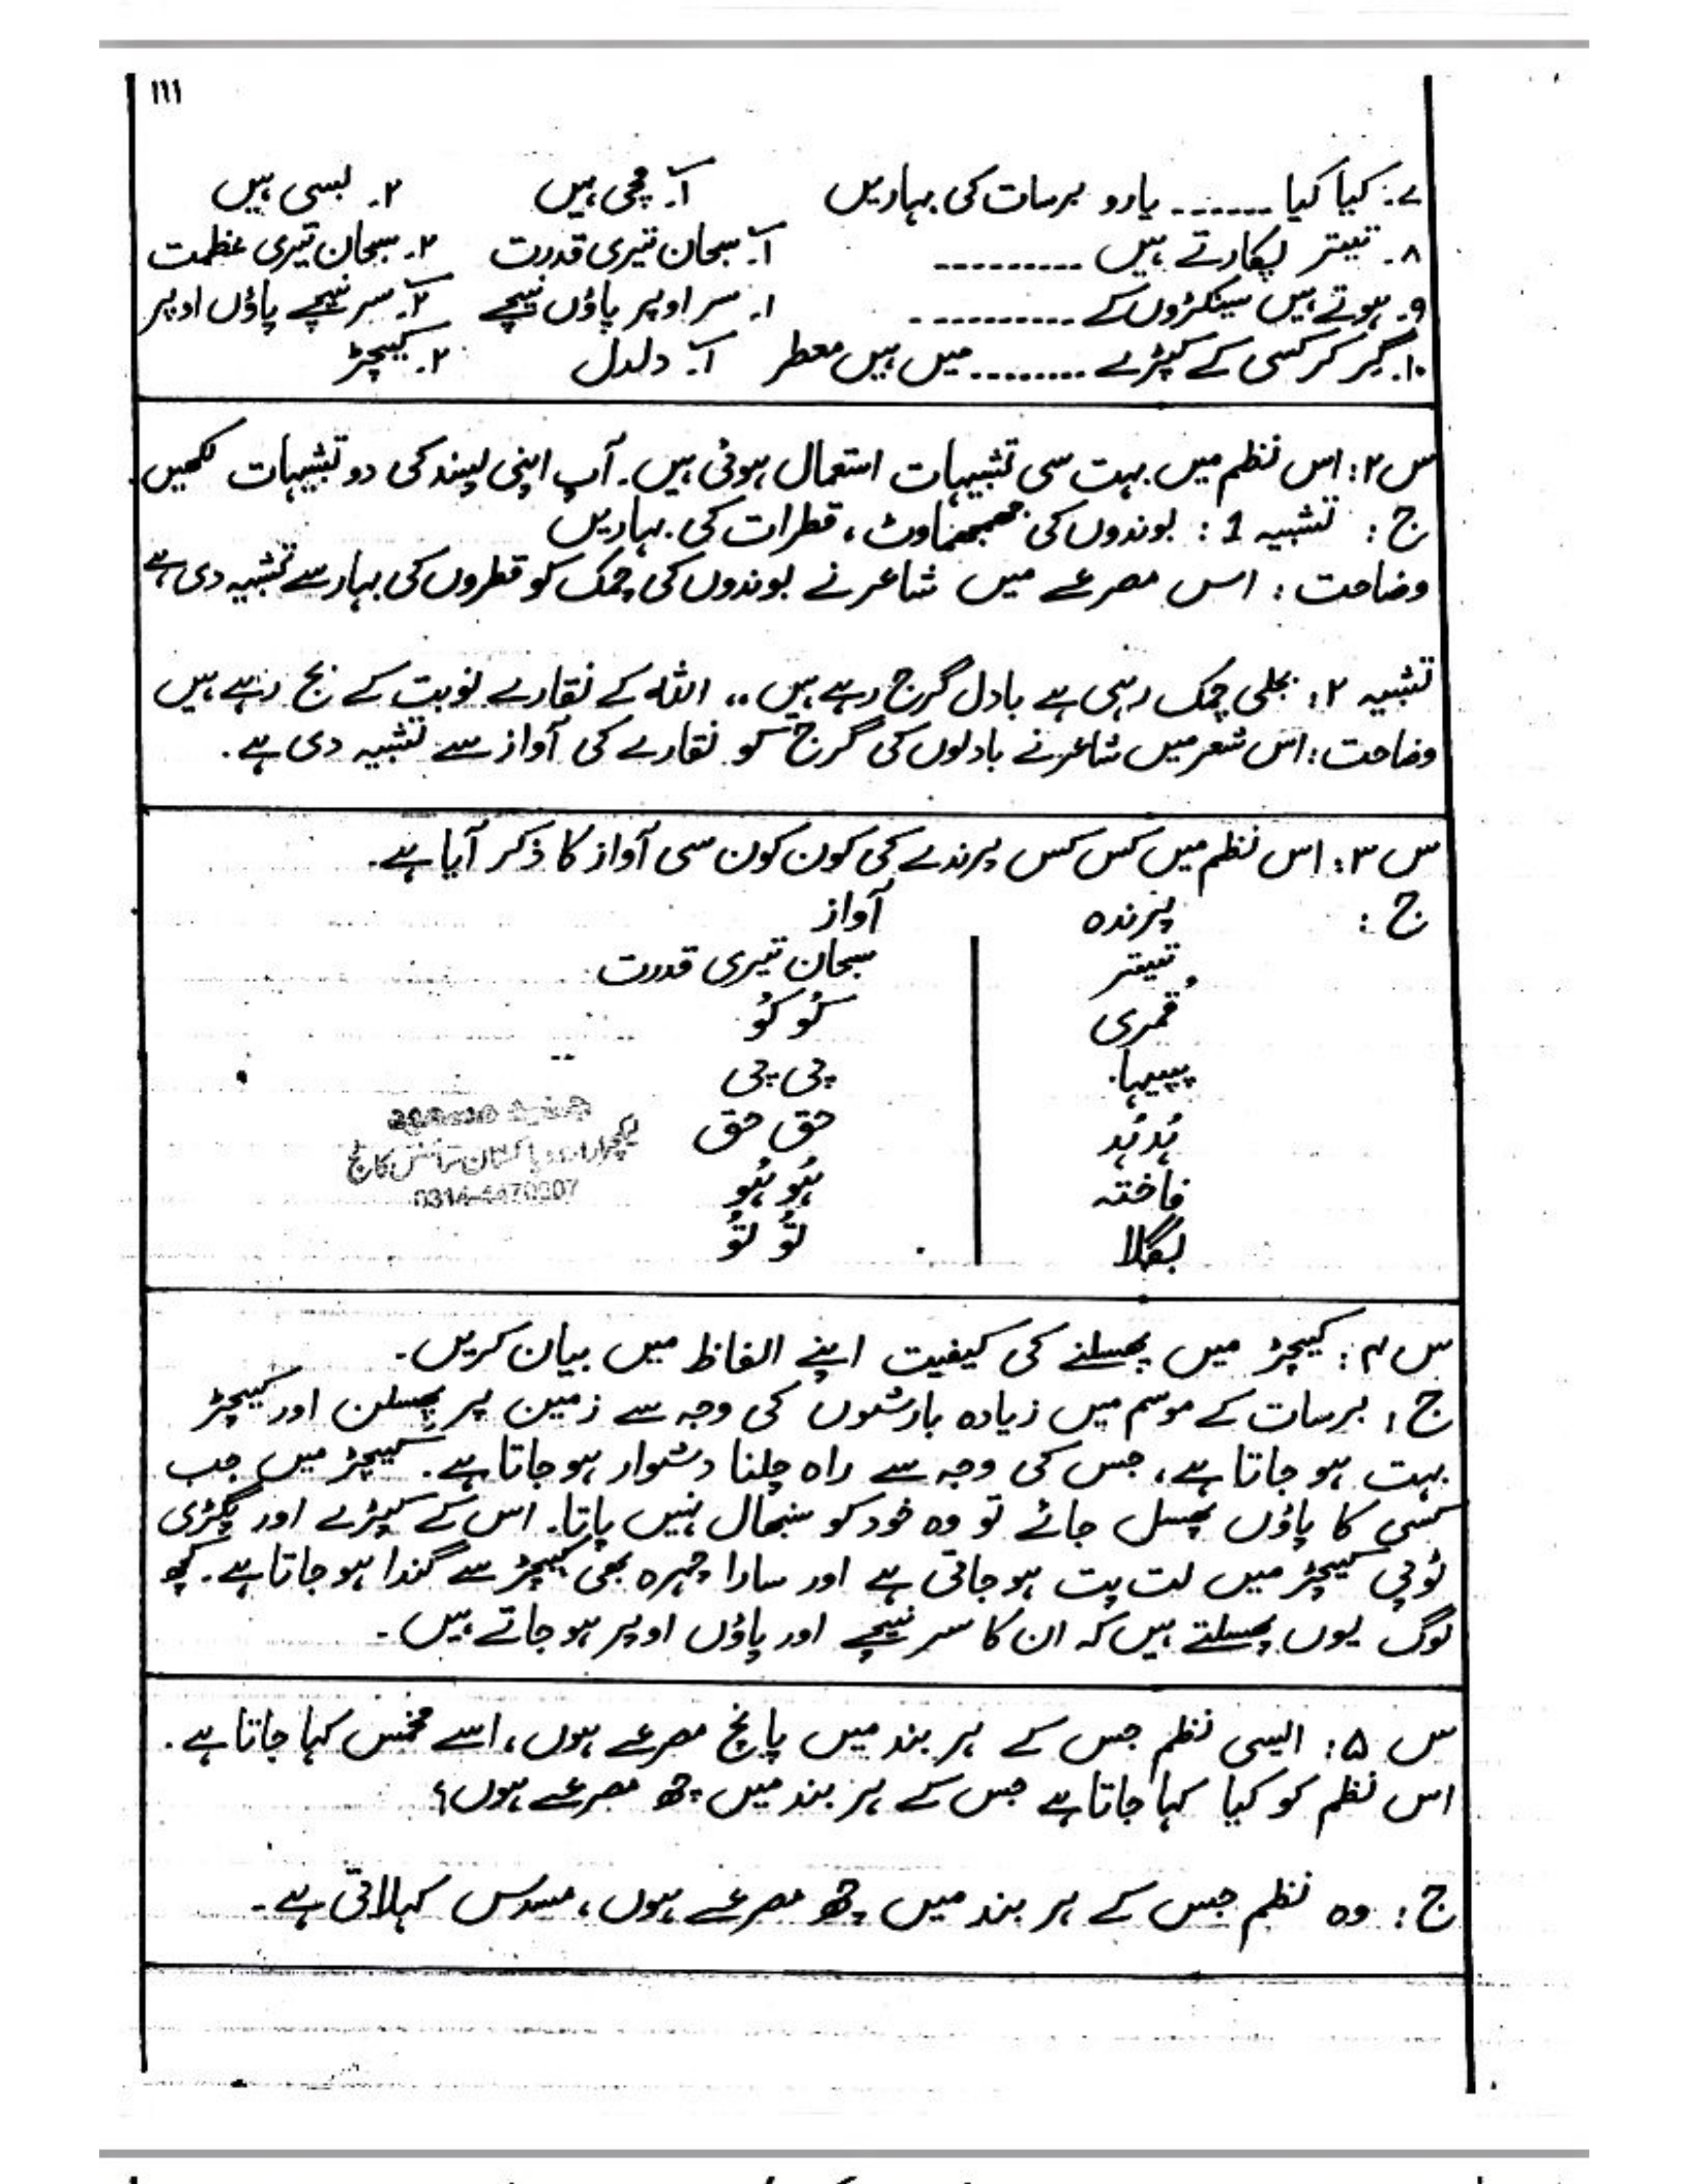 ۱۱۱
۷: کیا کیا ...... یارو برسات کی بہاریں ۱۔ مچی ہیں ۲۔ بسی ہیں
۸۔ تیتر پکارتے ہیں .......... ۱۔ سبحان تیری قدرت ۲۔ سبحان تیری عظمت
۹۔ ہوتے ہیں سینکڑوں کے ........... ۱۔ سر اوپر پاؤں نیچے ۲۔ سر نیچے پاؤں اوپر
۱۰۔ گر کر کسی کے کپڑے ......... میں ہیں معطر ۱۔ دلدل ۲۔ کیچڑ
س ۲: اس نظم میں بہت سی تشبیہات استعمال ہوئی ہیں۔ آپ اپنی پسند کی دو تشبیہات لکھیں۔
ج: تشبیہ 1: بوندوں کی جھمجھماوٹ، قطرات کی بہاریں
وضاحت: اس مصرعے میں شاعر نے بوندوں کی چمک کو قطروں کی بہار سے تشبیہ دی ہے
تشبیہ ۲: بجلی چمک رہی ہے بادل گرج رہے ہیں .. اللہ کے نقارے نوبت کے بج رہے ہیں
وضاحت: اس شعر میں شاعر نے بادلوں کی گرج کو نقارے کی آواز سے تشبیہ دی ہے۔
س ۳: اس نظم میں کس کس پرندے کی کون کون سی آواز کا ذکر آیا ہے۔
ج: پرندہ آواز
تیتر سبحان تیری قدرت
قُمری کُو کُو
پپیہا پی پی
ہُدہُد حق حق
فاختہ ہُو ہُو
بگلا تُو تُو
لیکچرار اردو پاکستان سائنس کالج
س ۴: کیچڑ میں پھسلنے کی کیفیت اپنے الفاظ میں بیان کریں۔
ج: برسات کے موسم میں زیادہ بارشوں کی وجہ سے زمین پر پھسلن اور کیچڑ
بہت ہو جاتا ہے، جس کی وجہ سے راہ چلنا دشوار ہو جاتا ہے۔ کیچڑ میں جب
کسی کا پاؤں پھسل جائے تو وہ خود کو سنبھال نہیں پاتا۔ اس کے کپڑے اور پگڑی
ٹوپی کیچڑ میں لت پت ہو جاتی ہے اور سارا چہرہ بھی کیچڑ سے گندا ہو جاتا ہے۔ کچھ
لوگ یوں پھسلتے ہیں کہ ان کا سر نیچے اور پاؤں اوپر ہو جاتے ہیں۔
س ۵: ایسی نظم جس کے ہر بند میں پانچ مصرعے ہوں، اسے مخمس کہا جاتا ہے۔
اس نظم کو کیا کہا جاتا ہے جس کے ہر بند میں چھ مصرعے ہوں؟
ج: وہ نظم جس کے ہر بند میں چھ مصرعے ہوں، مسدس کہلاتی ہے۔